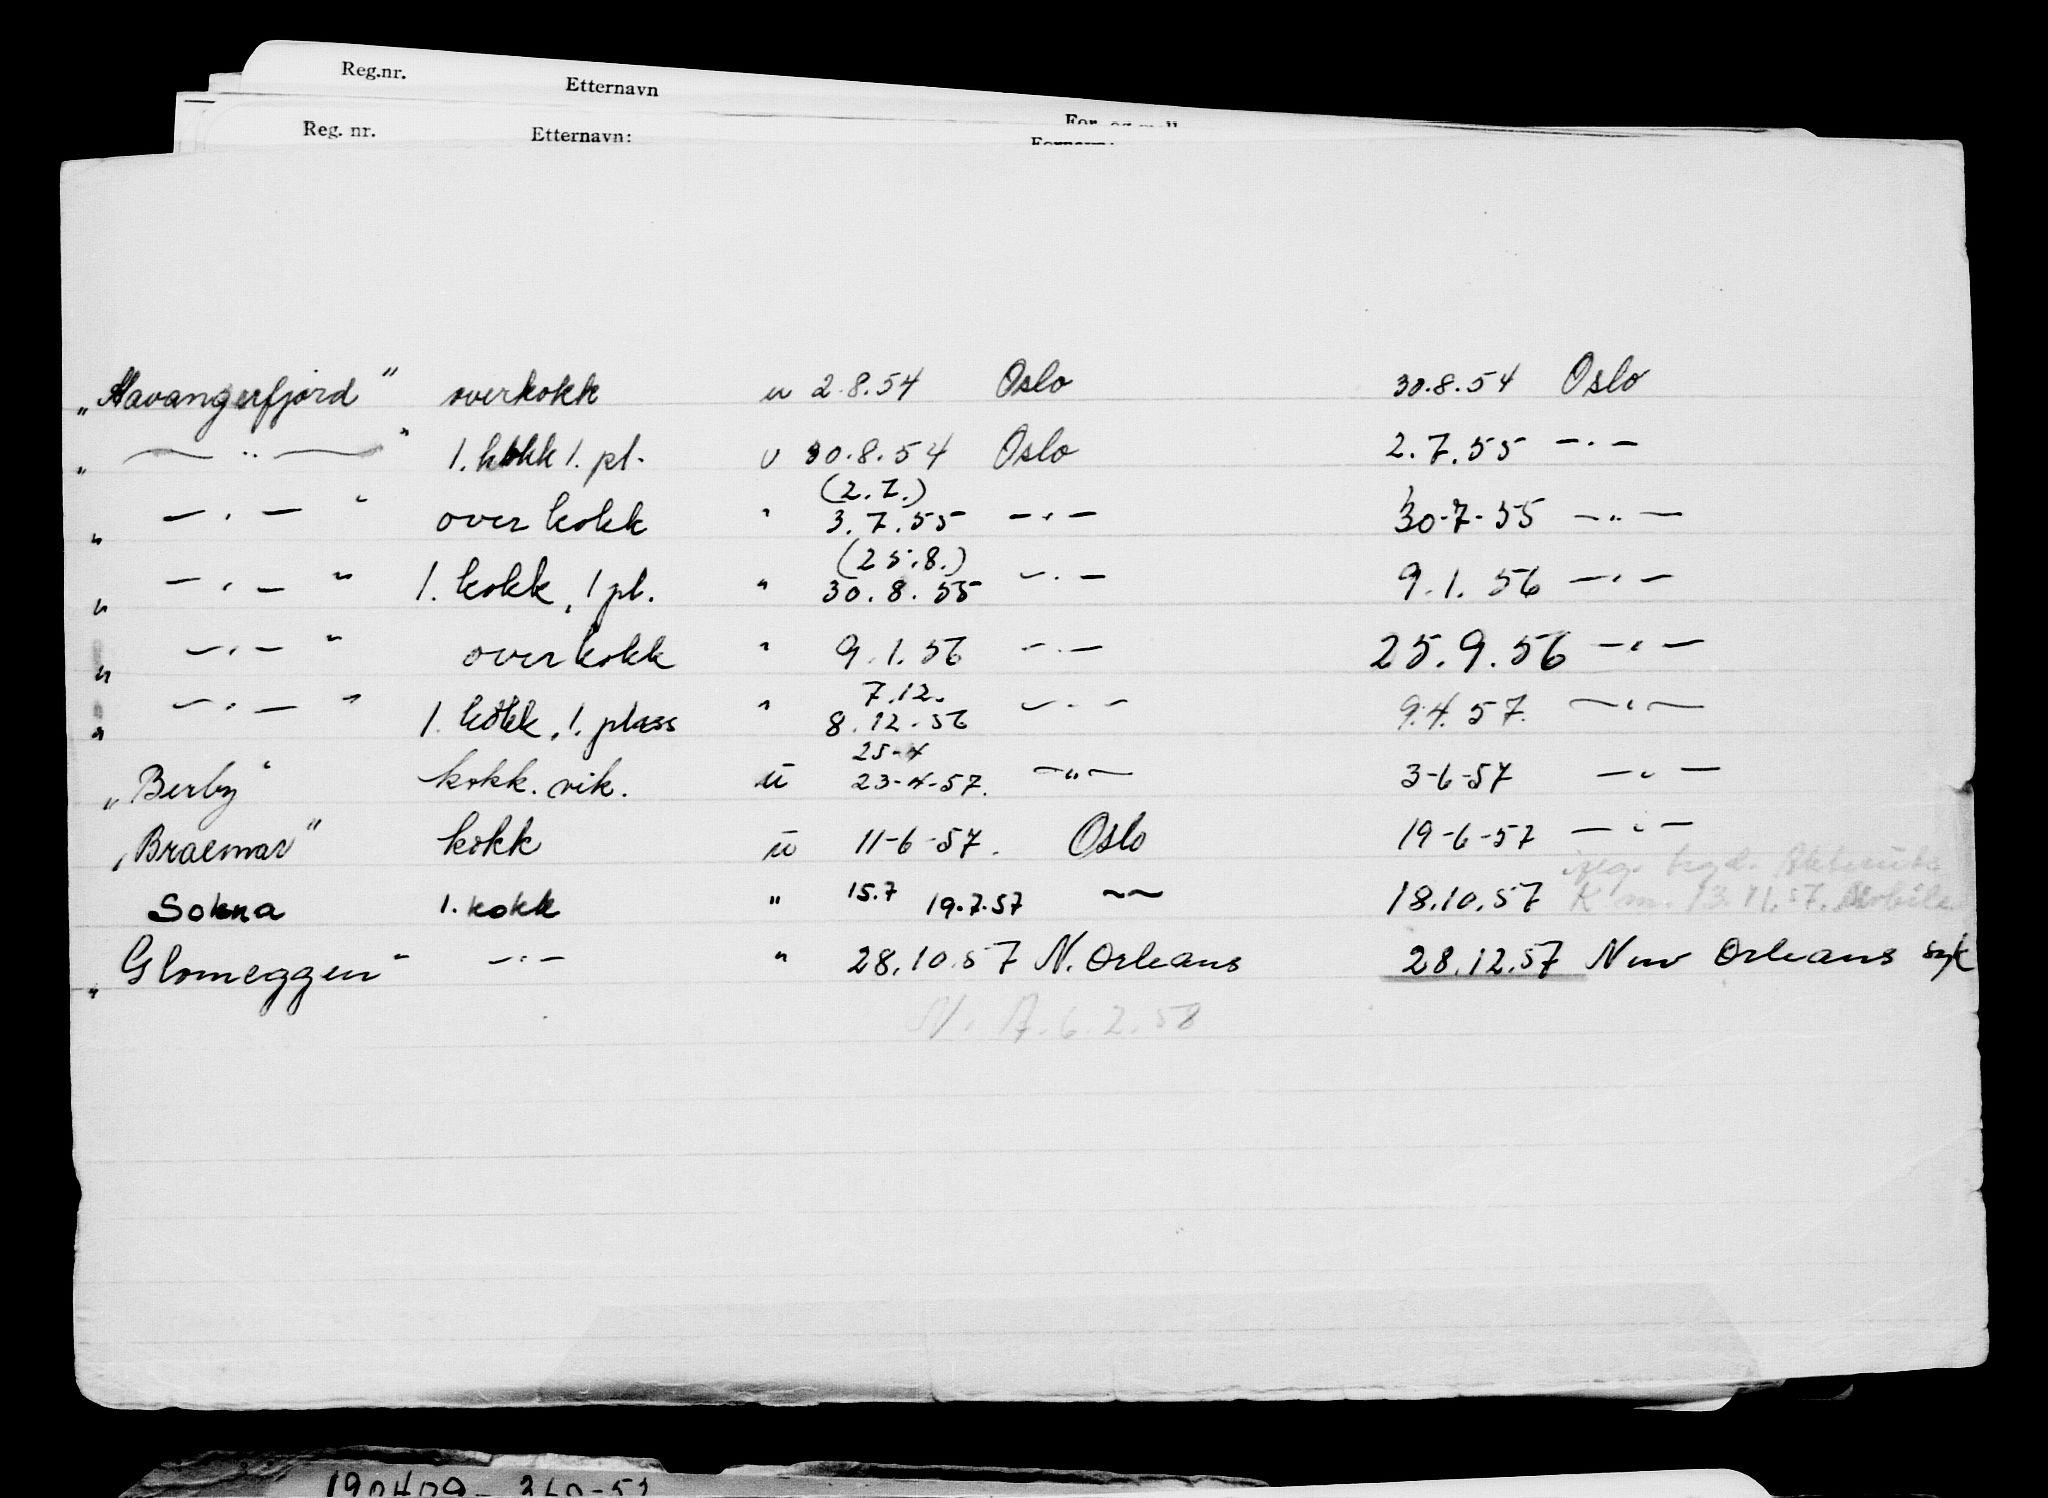 Reg.nr. Etternavn
Reg. nr. Etternavn:
„Havangerfjord" overkokk u 2.8.54 Oslo 30.8.54 Oslo
„ — " — " 1. kokk 1. pl. u 30.8.54 Oslo 2.7.55 — . —
(2.7.)
„ — . — " overkokk " 3.7.55 — . — 30-7-55 — " —
(25.8.)
„ — . — " 1. kokk, 1 pl. " 30.8.55 — . — 9.1.56 — . —
„ — . — " overkokk " 9.1.56 — . — 25.9.56 — . —
7.12.
„ — . — " 1. kokk, 1. plass " 8.12.56 — . — 9.4.57. — . —
25-4
„Berby" kokk. vik. u 23-4-57. — " — 3-6-57 — " —
„Braemar" kokk u 11-6-57. Oslo 19-6-57 — " —
Sokna 1. kokk " 15.7 19.7.57 — — 18.10.57 K m. 13.11.57. Mobile
„Glomeggen" — . — " 28.10.57 N. Orleans 28.12.57 New Orleans syk
N. A. 6.2.58
190409- 360-51